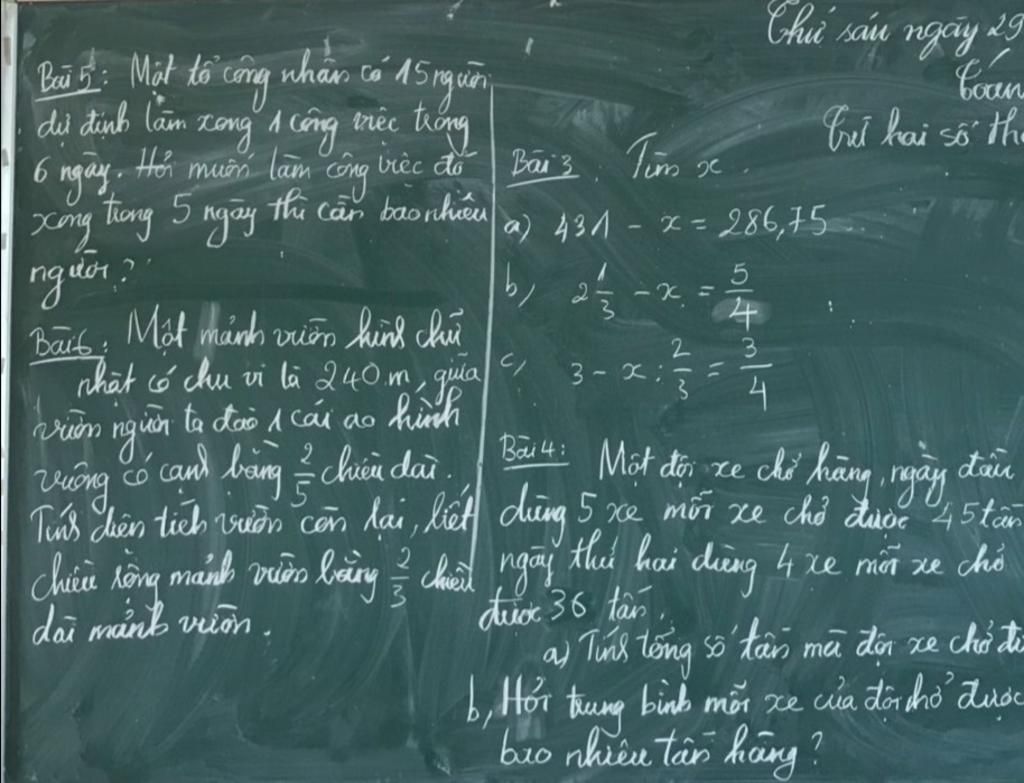 Bài 5: Một tổ công nhân có 15 người
dự định làm xong 1 công việc trong
6 ngày. Hỏi muốn làm công việc đó
xong trong 5 ngày thì cần bao nhiêu
người?
Bài 6: Một mảnh vườn hình chữ
nhật có chu vi là 240 m, giữa
vườn người ta đào 1 cái ao hình
vuông có cạnh bằng 2/5 chiều dài.
Tính diện tích vườn còn lại, biết
chiều rộng mảnh vườn bằng 2/3 chiều
dài mảnh vườn.
Thứ sáu ngày 29
Toán
Trừ hai số th
Bài 3 Tìm x.
a) 431 - x = 286,75
b, 2 1/3 - x = 5/4
c, 3 - x : 2/3 = 3/4
Bài 4: Một đội xe chở hàng, ngày đầu
dùng 5 xe mỗi xe chở được 45 tấn
ngày thứ hai dùng 4 xe mỗi xe chở
được 36 tấn.
a) Tính tổng số tấn mà đội xe chở đư
b, Hỏi trung bình mỗi xe của đội chở được
bao nhiêu tấn hàng?